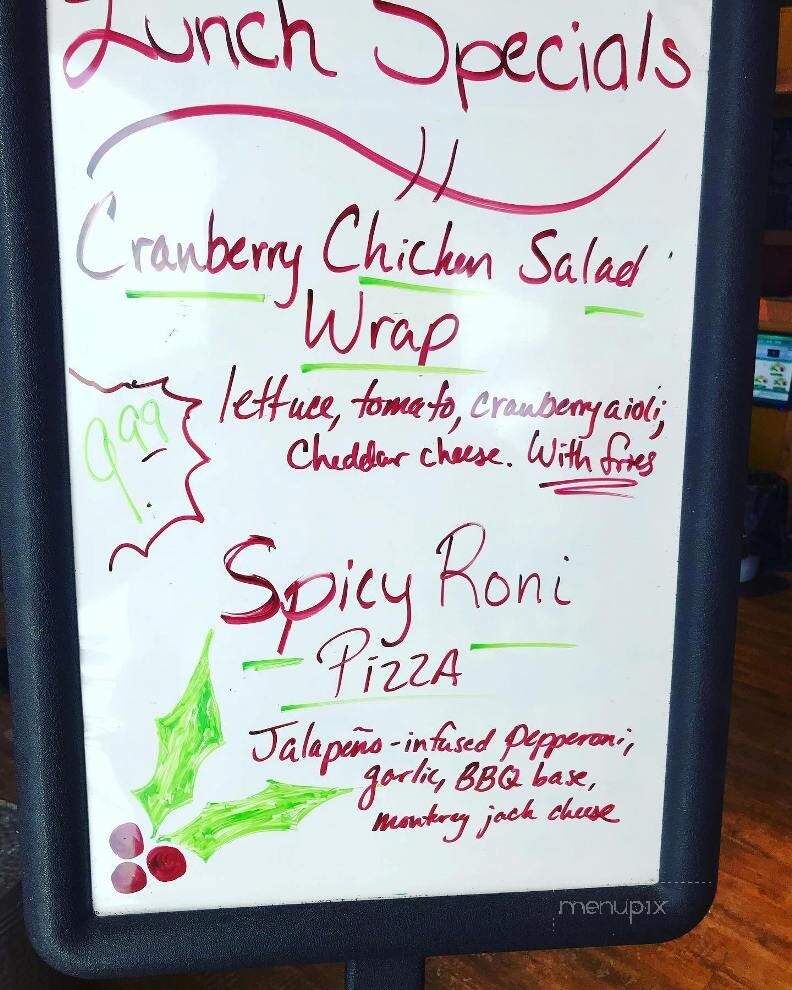 Lunch Specials
Cranberry Chicken Salad
Wrap
lettuce, tomato, cranberry aioli,
Cheddar cheese. With fries
9.99
Spicy Roni
Pizza
Jalapeño-infused Pepperoni,
garlic, BBQ base,
monterey jack cheese
menupix